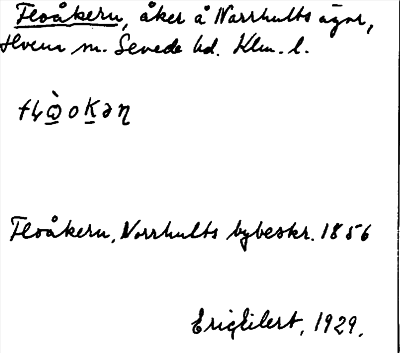 Floåkern, åker å Narrhults ägor,
m. Sevede hd. Klm. l.
Floåkern, Norrhults bybeskr. 1856
Eric Eilert, 1929.